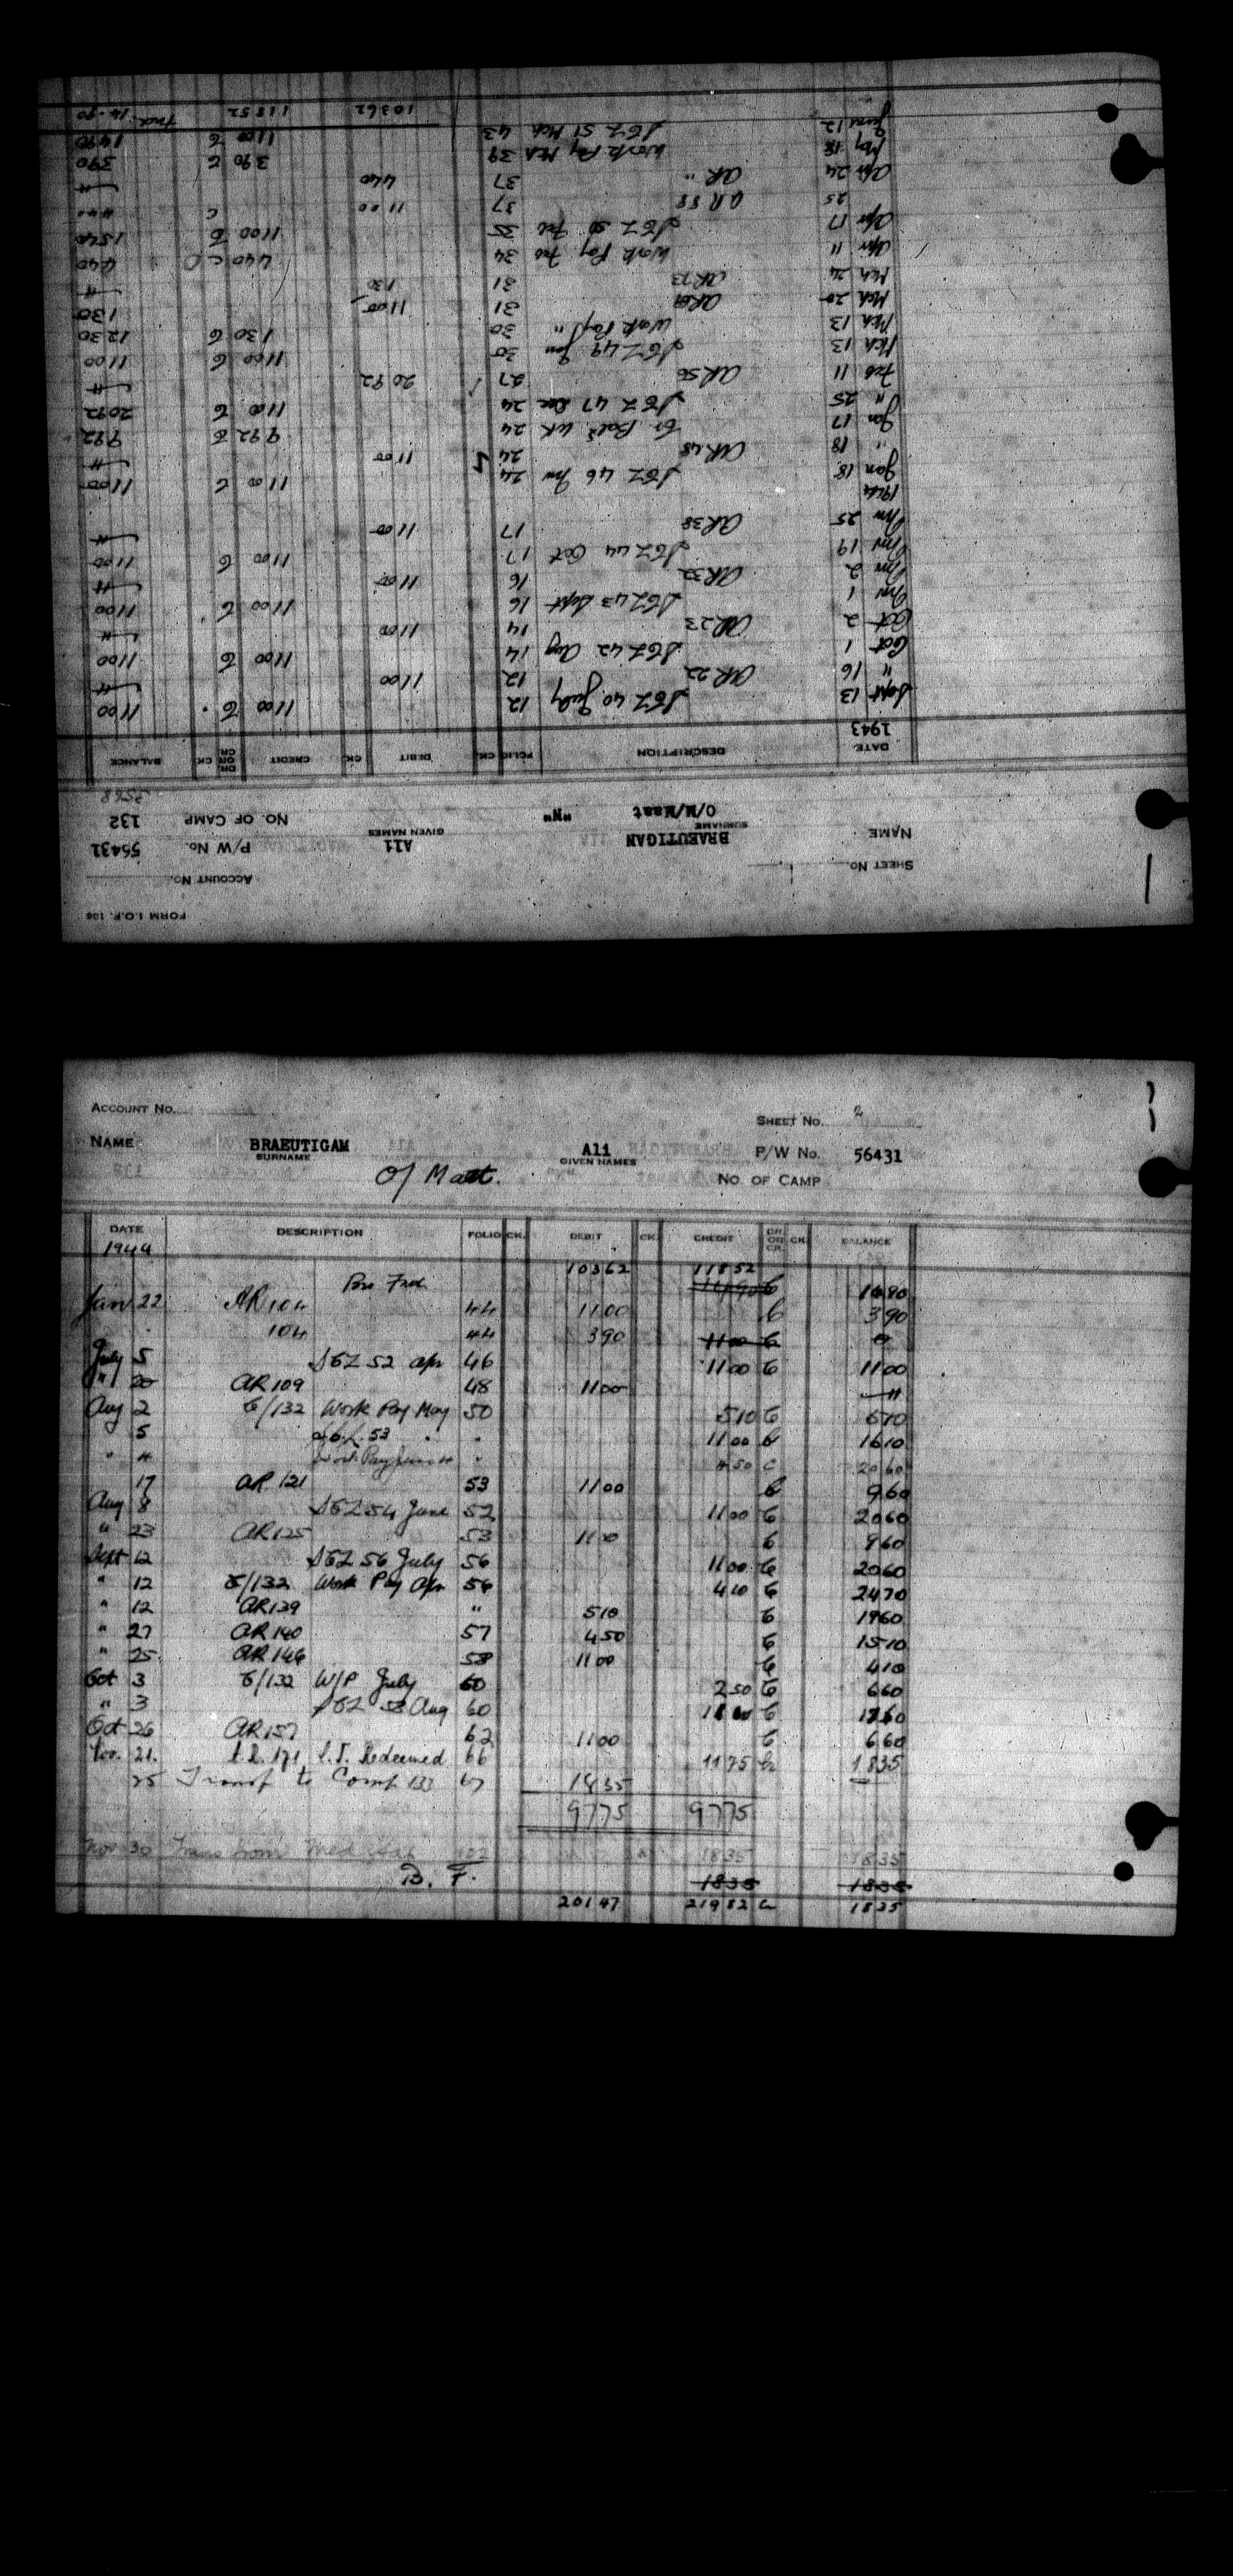 FORM I.O.F. 106
ACCOUNT No.
SHEET No.
NAME BRAEUTIGAN Ali P/W No. 56431
SURNAME GIVEN NAMES
O/M/Maat "N" NO. OF CAMP 132
3568
DATE DESCRIPTION FOLIO CK. DEBIT CK. CREDIT DR. OR CR. CK. BALANCE
1943
Sept 13 SEZ 40 July 12 1100 C 1100
" 16 AR 22 12 1100
Oct 1 SEZ 42 Aug 14 1100 C 1100
Oct 2 AR 23 14 1100
Nov 1 SEZ 43 Sept 16 1100 C 1100
Nov 2 AR 32 16 1100
Nov 19 SEZ 44 Oct 17 1100 C 1100
Nov 25 AR 38 17 1100
1944
Jan 18 SEZ 46 Nov 24 1100 C 1100
" 18 AR 48 24 1100
Jan 17 Bal 24 992 C 992
" 25 SEZ 47 Dec 24 1100 C 2092
Feb 11 AR 56 27 2092
Mch 13 SEZ 49 Jan 30 1100 C 1100
Mch 13 Work Pay " 30 130 C 1230
Mch 20 AR 69 31 1100 130
Mch 24 AR 73 31 130
Apr 11 Work Pay Feb 34 440 C 440
Apr 17 SEZ 50 Feb 35 1100 C 1540
25 AR 88 37 1100 C 440
Apr 24 AR " 37 440
May 18 Work Pay Mch 39 390 C 390
June 12 SEZ 51 Mch 43 1100 C 1490
10362 11852 Fwd. 14.90
ACCOUNT No.
SHEET No. 2
NAME BRAEUTIGAM Ali P/W No. 56431
SURNAME GIVEN NAMES
O/ Maat. NO. OF CAMP
DATE DESCRIPTION FOLIO CK. DEBIT CK. CREDIT DR. OR CR. CK. BALANCE
1944
10362 11852
Bro Fwd. 1490 C 1490
June 22 AR 104 44 1100 C 390
104 44 390 1100 C 0
July 5 SEZ 52 Apr 46 1100 C 1100
" 20 AR 109 48 1100
Aug 2 C/132 Work Pay May 50 510 C 510
5 SEZ 53 " " 1100 C 1610
" " Work Pay June " 450 C 2060
17 AR 121 53 1100 C 960
Aug 8 SEZ 54 June 52 1100 C 2060
" 23 AR 125 53 1100 C 960
Sept 12 SEZ 56 July 56 1100 C 2060
" 12 C/132 Work Pay Apr 56 410 C 2470
" 12 AR 139 " 510 C 1960
" 27 AR 140 57 450 C 1510
" 25 AR 146 58 1100 C 410
Oct 3 C/132 W/P July 60 250 C 660
" 3 SEZ 58 Aug 60 1100 C 1760
Oct 26 AR 157 62 1100 C 660
Nov. 21. 171 Redeemed 66 1175 C 1835
25 Transf to Camp 133 67 1835
9775 9775
Nov 30 Trans from Med 102 1835 1835
B. F. 1835 1835
20147 21982 C 1835